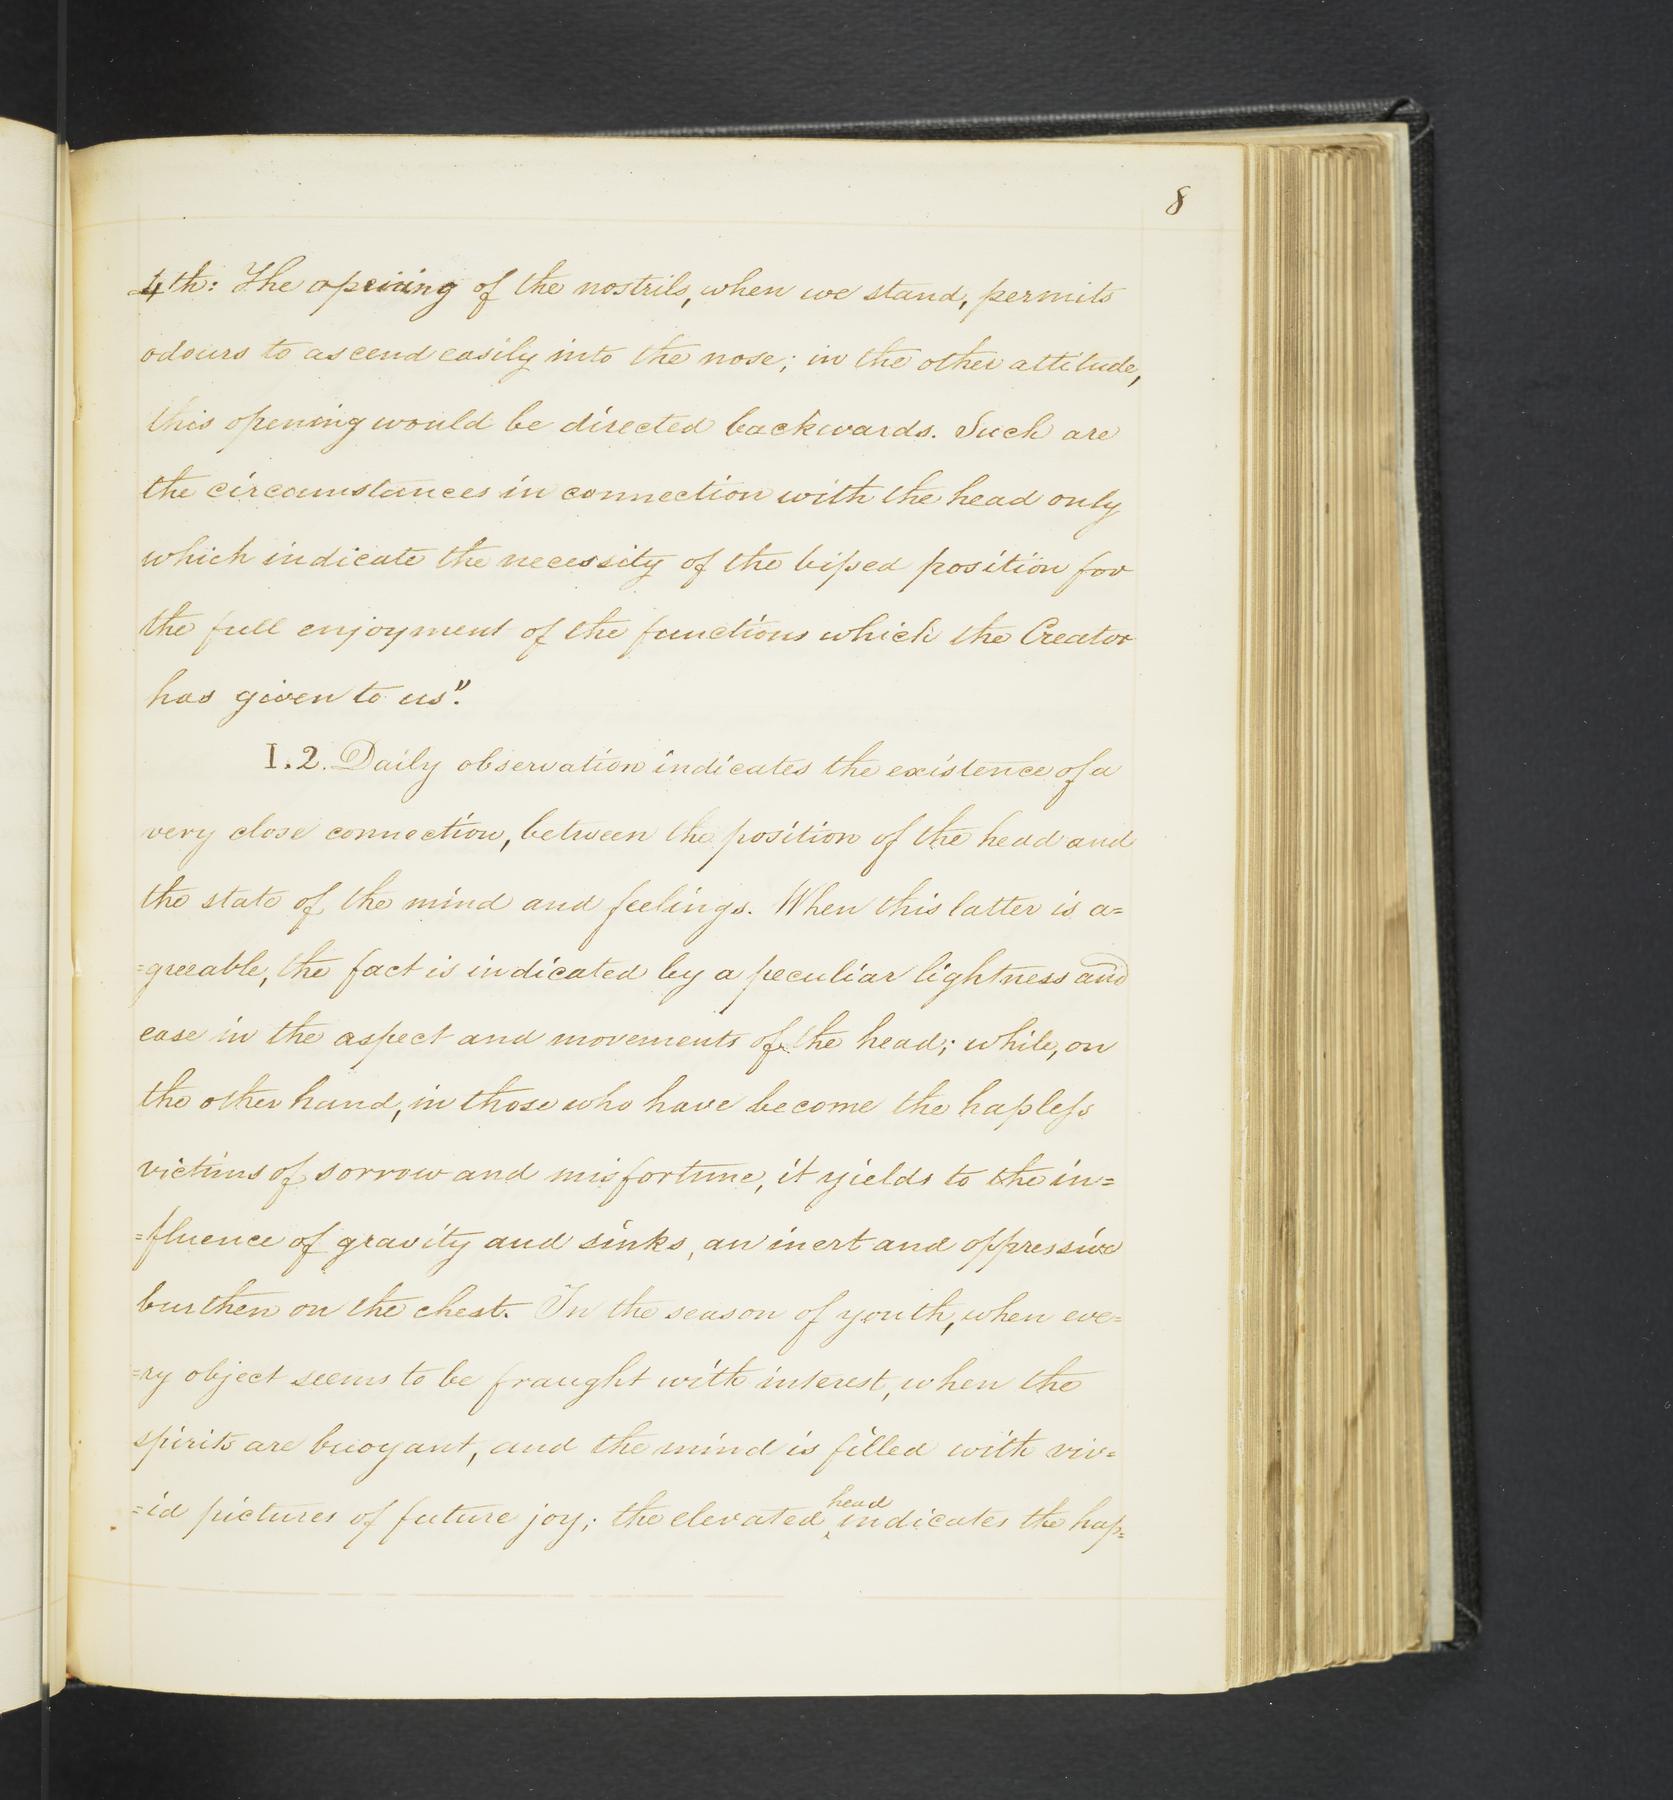 8
4th: The opening of the nostrils, when we stand, permits
odours to ascend easily into the nose; in the other attitude,
this opening would be directed backwards. Such are
the circumstances in connection with the head only
which indicate the necessity of the biped position for
the full enjoyment of the functions which the Creator
has given to us".
I. 2. Daily observation indicates the existence of a
very close connection, between the position of the head and
the state of the mind and feelings. When this latter is a=
=greeable, the fact is indicated by a peculiar lightness and
ease in the aspect and movements of the head; while, on
the other hand, in those who have become the hapless
victims of sorrow and misfortune, it yields to the in=
=fluence of gravity and sinks, an inert and oppressive
burthen on the chest. In the season of youth, when eve=
=ry object seems to be fraught with interest, when the
spirits are buoyant, and the mind is filled with viv=
head
=id pictures of future joy; the elevated ‸ indicates the hap=